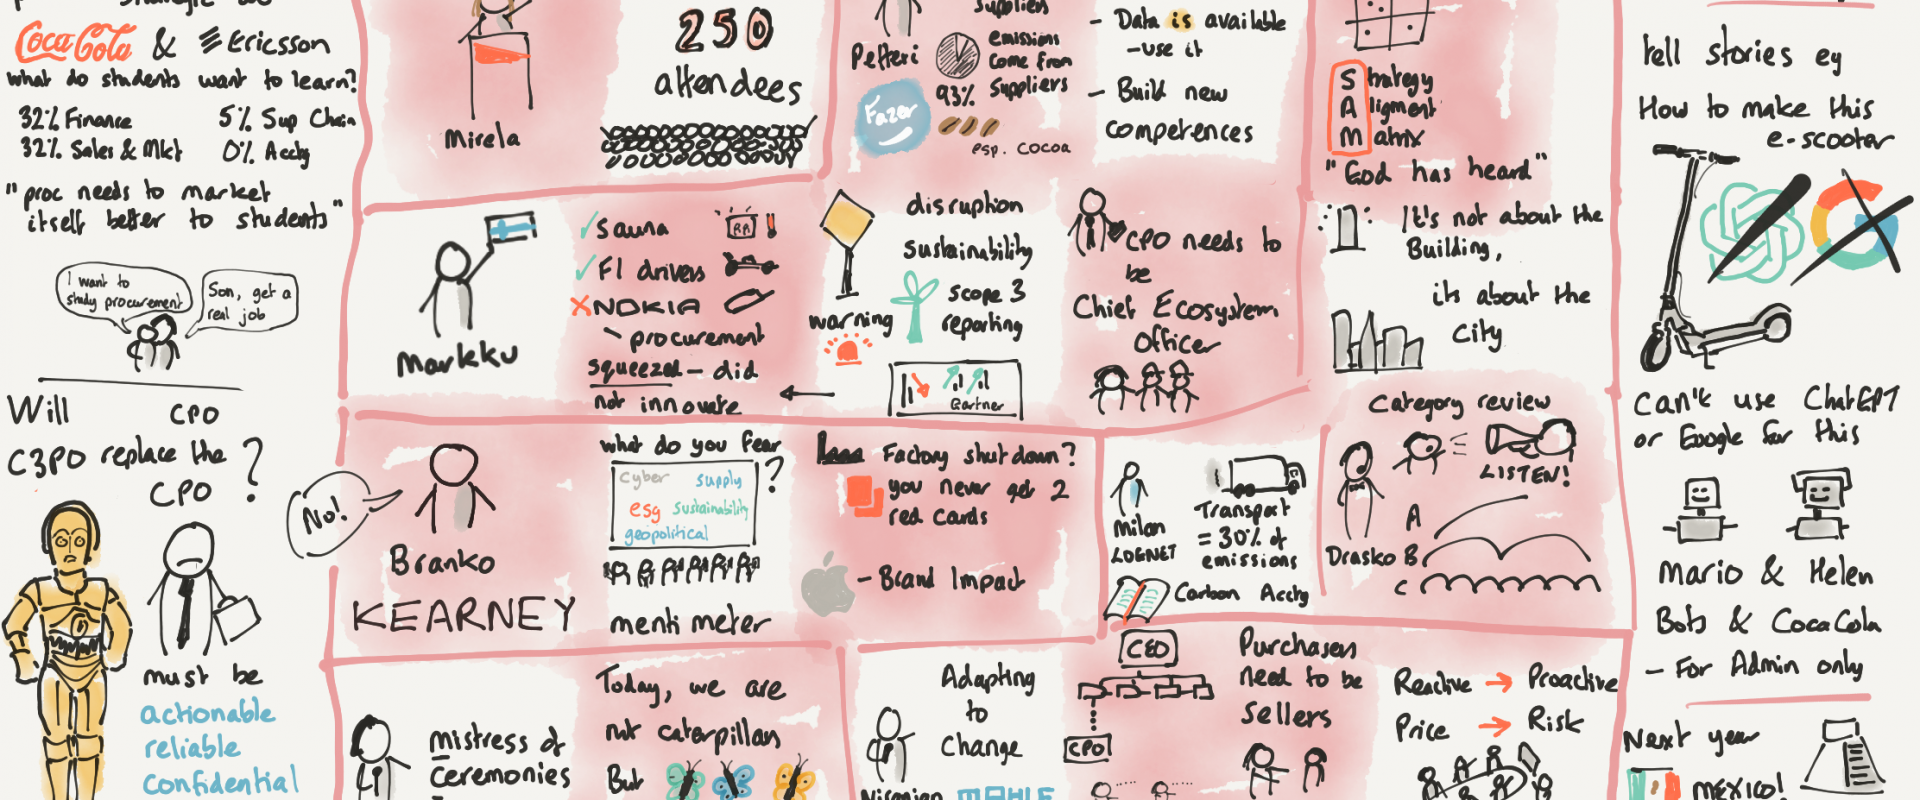 Coca-Cola & Ericsson
what do students want to learn?
32% Finance
5% Sup Chain
32% Sales & Mkt
0% Acctg
"proc needs to market
itself better to students"
I want to
study procurement
Son, get a
real job
Will
CPO
C3PO replace the
CPO
?
must be
actionable
reliable
confidential
Mirela
250
attendees
Petteri
suppliers
emissions
come from
suppliers
93%
Fazer
esp. cocoa
- Data is available
- use it
- Build new
competences
Strategy
Aligment
Matrix
"God has heard"
Markku
✓ Sauna
✓ F1 drivers
X NOKIA
procurement
squeezed - did
not innovate
disruption
sustainability
scope 3
reporting
warning
Gartner
CPO needs to
be
Chief Ecosystem
Officer
It's not about the
Building,
its about the
City
No!
Branko
KEARNEY
what do you fear
?
Cyber
supply
esg
sustainability
geopolitical
mentimeter
Factory shutdown?
you never get 2
red cards
- Brand Impact
Milan
LOGNET
Transport
= 30% of
emissions
Carbon Acctg
Category review
LISTEN!
Drasko
A
B
C
mistress of
Ceremonies
Today, we are
not caterpillars
But
Adapting
to
Change
MAHLE
CEO
CPO
Purchasers
need to be
sellers
Reactive → Proactive
Price → Risk
tell stories eg
How to make this
e-scooter
Can't use ChatGPT
or Google for this
Mario & Helen
Bots & CocaCola
- For Admin only
Next year
mexico!